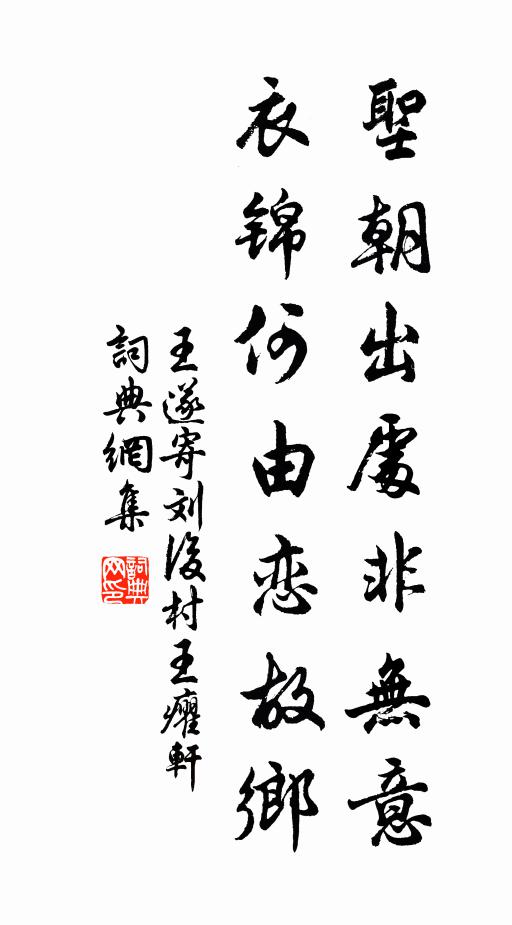 聖朝出處非無意
衣錦何由恋故鄉
王遂寄刘後村王癯軒
詞典網集
詞典网印